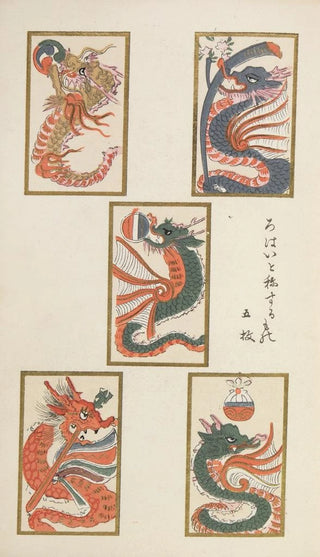 ろはいと称するもの
五枚